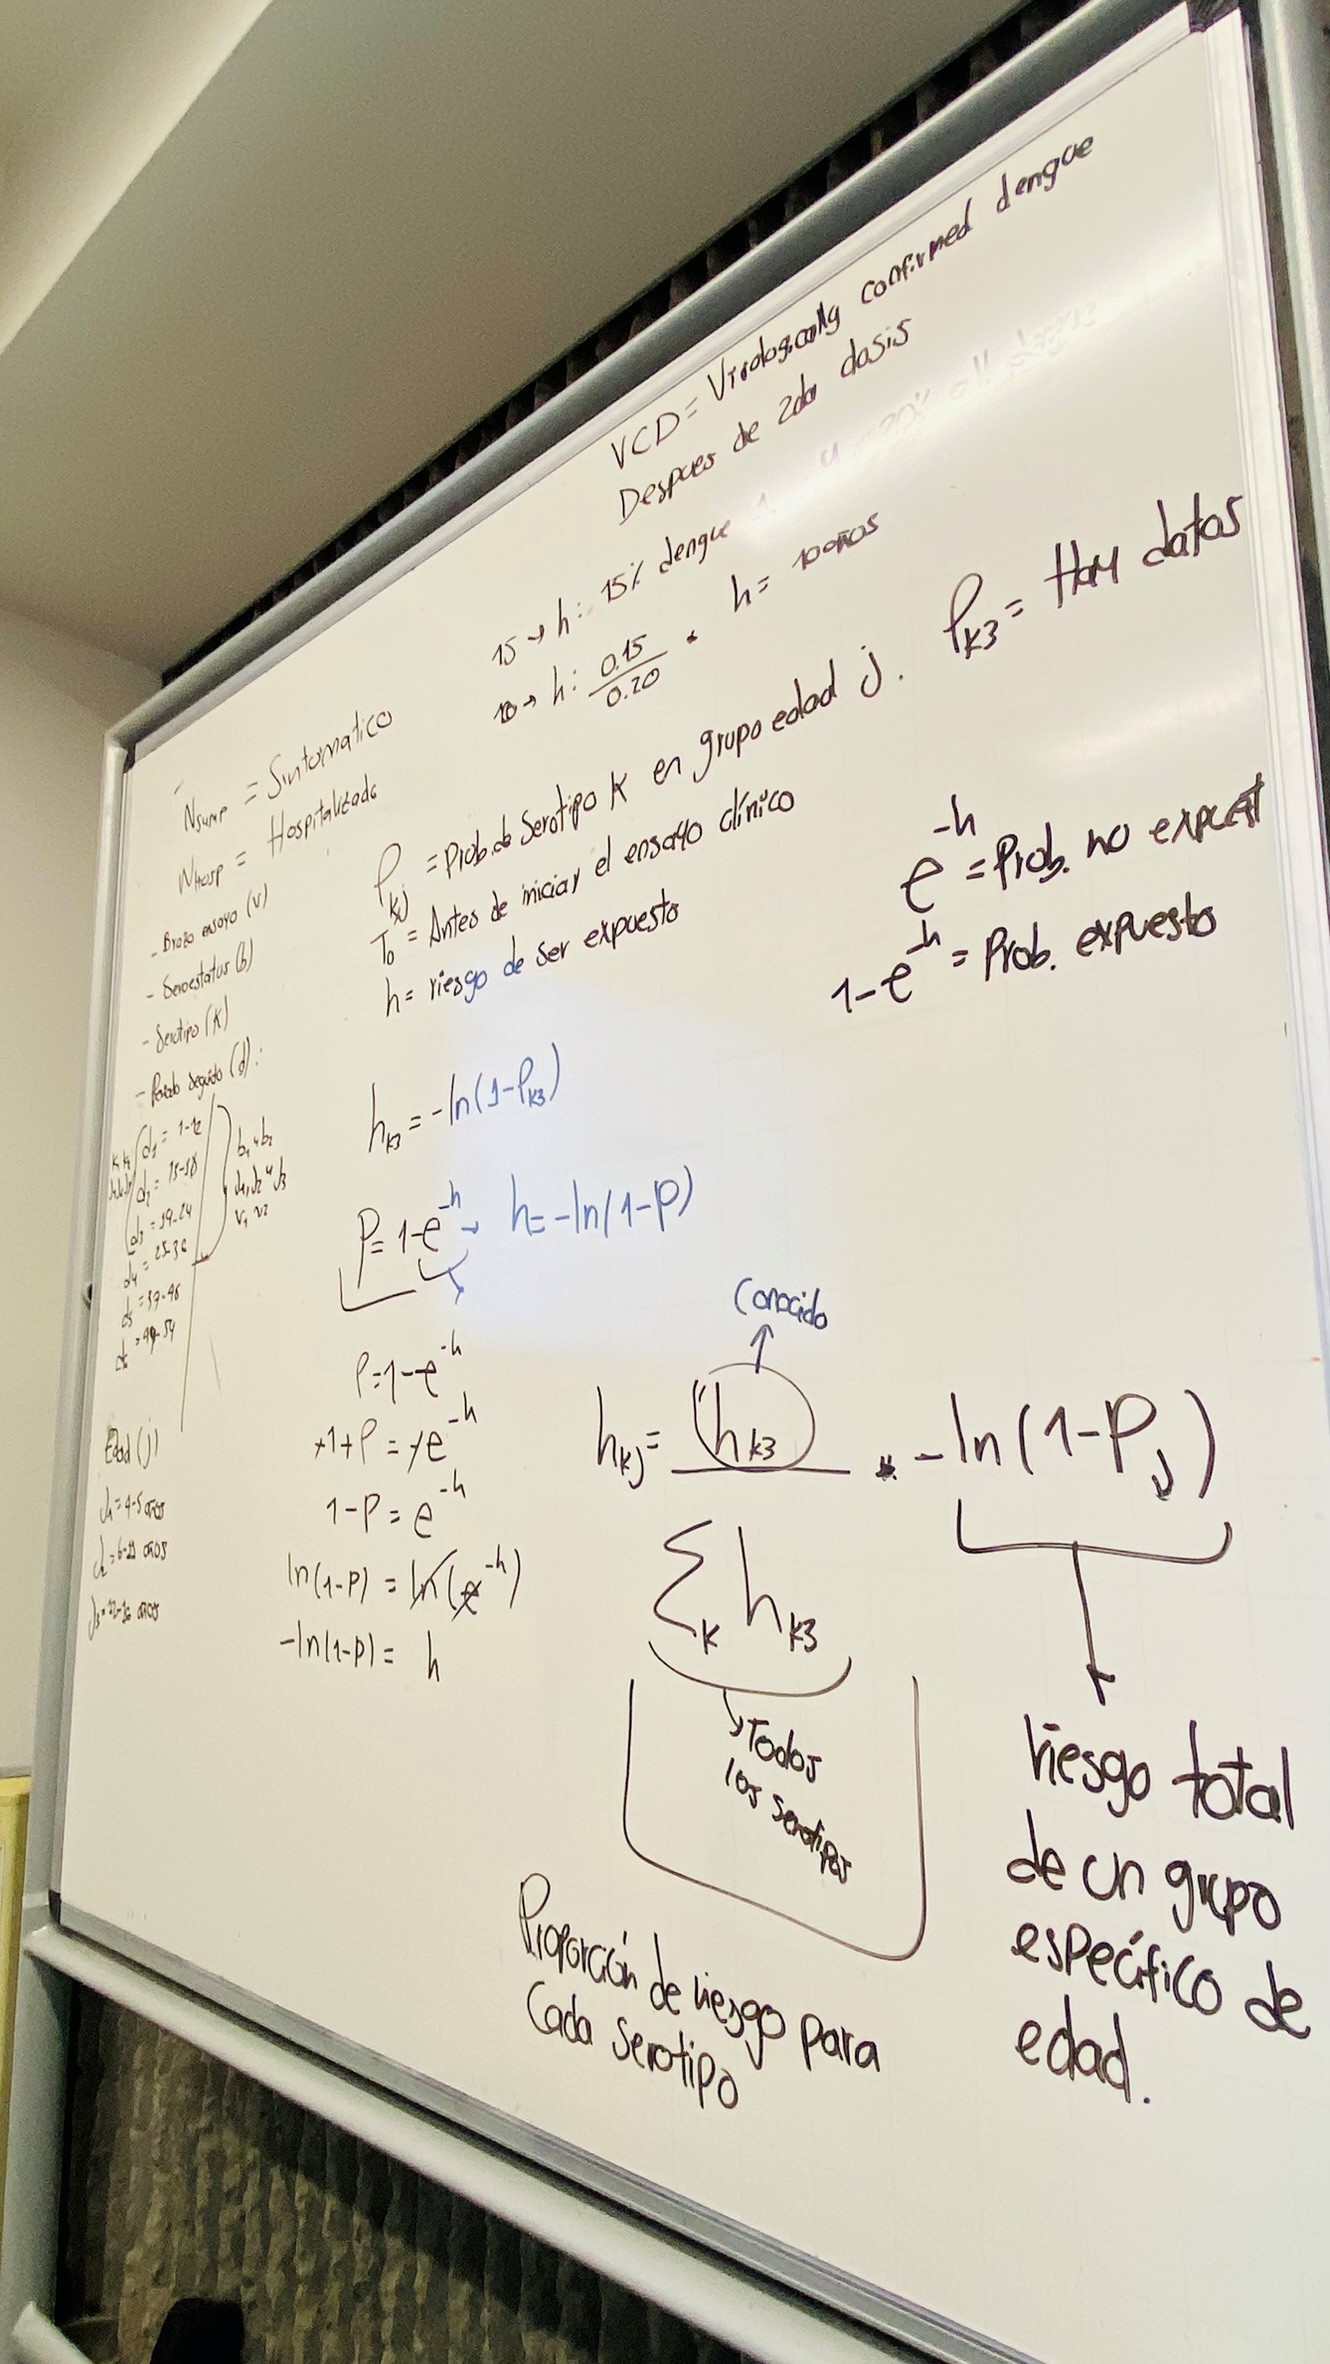 VCD = Virologically confirmed dengue
Despues de 2da dosis
15 → h: 15% dengue 1.
10 → h: 0.15 / 0.20 • h = 10 años
Nsymp = Sintomatico
Nhosp = Hospitalizado
- Brazo ensayo (v)
- Seroestatus (b)
- Serotipo (K)
- Periodo seguido (d):
d1 = 1-12
d2 = 13-18
d3 = 19-24
d4 = 25-36
d5 = 37-48
d6 = 49-54
Edad (j)
J1 = 4-5 años
J2 = 6-11 años
J3 = 12-16 años
Pkj = Prob. de Serotipo K en grupo edad j. PK3 = Hay datos
T0 = Antes de iniciar el ensayo clínico
h = riesgo de ser expuesto
e^-h = Prob. no expuest
1-e^-h = Prob. expuesto
hK3 = -ln(1-PK3)
P = 1-e^-h → h = -ln(1-P)
P = 1-e^-h
+1+P = -e^-h
1-P = e^-h
ln(1-P) = ln(e^-h)
-ln(1-P) = h
Conocido
hKj = hK3 / Σk hK3 • -ln(1-Pj)
Todos
los serotipos
Proporción de riesgo para
Cada serotipo
riesgo total
de un grupo
específico de
edad.